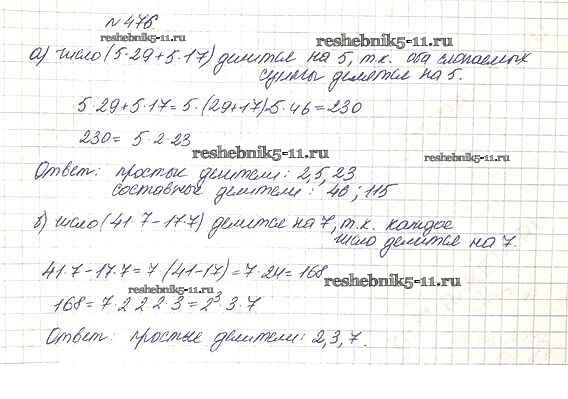 №476
reshebnik5-11.ru
reshebnik5-11.ru
а) число (5·29+5·17) делится на 5, т.к. оба слагаемых
суммы делятся на 5.
5·29+5·17=5·(29+17)=5·46=230
230= 5·2·23
reshebnik5-11.ru
reshebnik5-11.ru
Ответ: простые делители: 2,5,23
составные делители: 46; 115
б) число (41·7-17·7) делится на 7, т.к. каждое
число делится на 7.
41·7-17·7=7(41-17)=7·24=168
reshebnik5-11.ru
reshebnik5-11.ru
168=7·2·2·2·3=2³·3·7
Ответ: простые делители: 2,3,7.